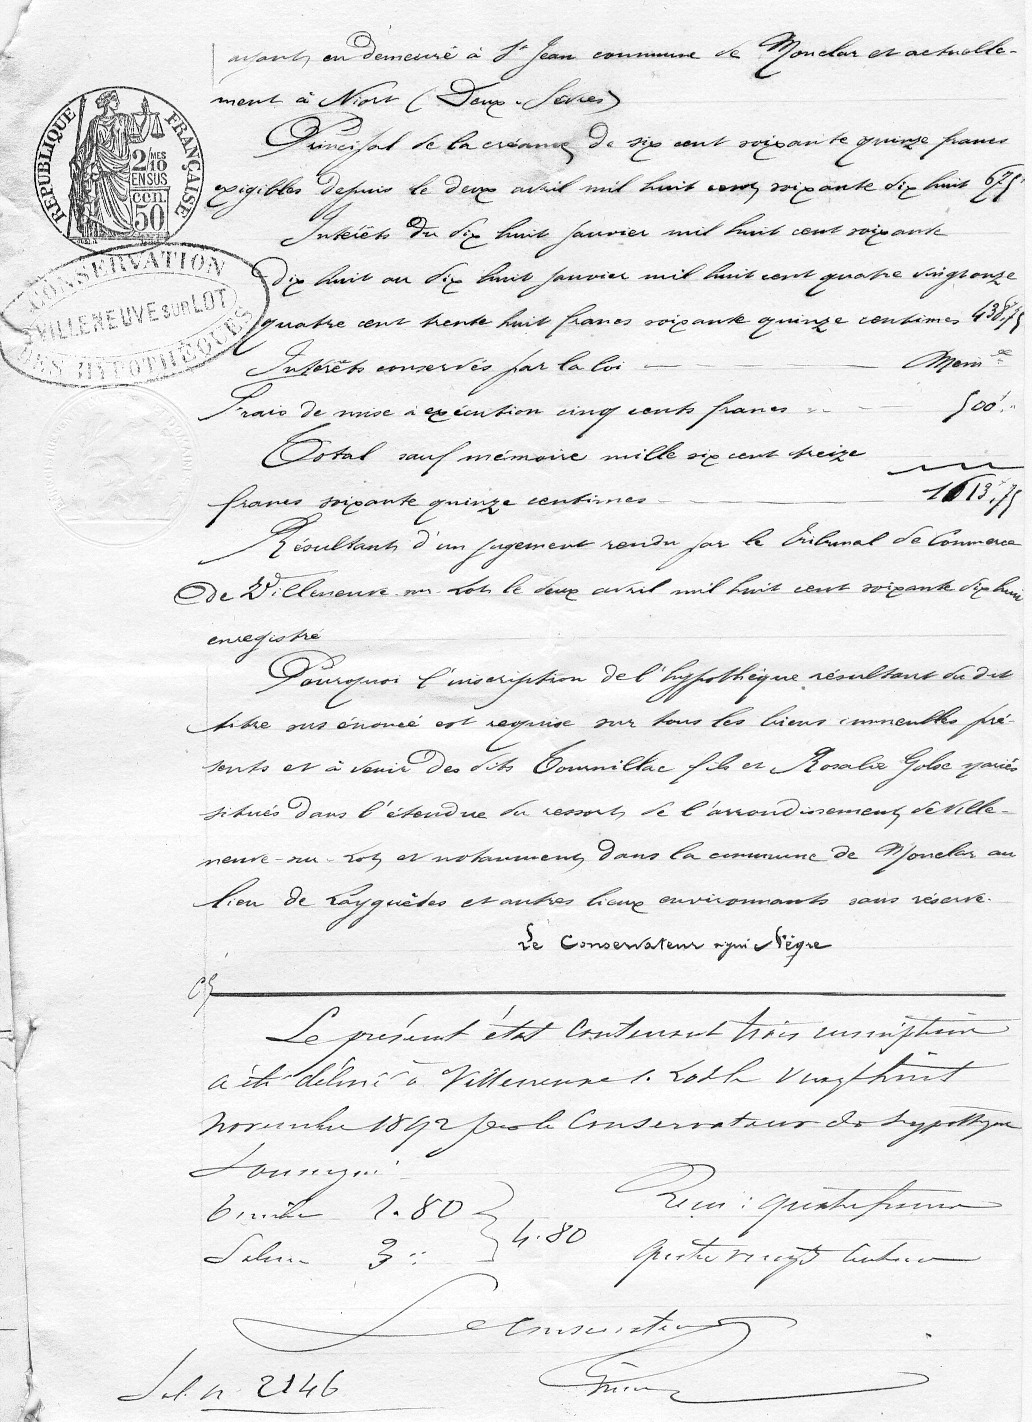 ayant en demeuré à St Jean commune de Monclar et actuelle-
ment à Niort (Deux-Sèvres)
RÉPUBLIQUE FRANÇAISE
2/10 EN SUS
50
Principal de la créance de six cent soixante quinze francs
exigibles depuis le deux avril mil huit cent soixante dix huit 675
Intérêts du dix huit janvier mil huit cent soixante
CONSERVATION
DES HYPOTHÈQUES
VILLENEUVE sur LOT
dix huit au dix huit janvier mil huit cent quatre vingt onze
quatre cent trente huit francs soixante quinze centimes 438f,75
Intérêts conservés par la loi — — Memre
Frais de mise à exécution cinq cents francs 500f
Total sauf mémoire mille six cent treize
francs soixante quinze centimes 1613f,75
Résultant d'un jugement rendu par le Tribunal de Commerce
de Villeneuve sur Lot le deux avril mil huit cent soixante dix huit
enregistré
Pourquoi l'inscription de l'hypothèque résultant du dit
titre sus énoncé est requise sur tous les biens immeubles pré-
sents et à venir des dits Tournillac fils et Rosalie Golse mariés
situés dans l'étendue du ressort de l'arrondissement de Ville-
neuve-sur-Lot et notamment dans la commune de Monclar au
lieu de Layguedes et autres lieux environnants sans réserve.
Le Conservateur signé Nègre
Le présent état contenant trois inscriptions
a été délivré à Villeneuve s. Lot le vingt huit
novembre 1892 par le Conservateur des hypothèques
Soussigné
Timbre 1.80
4.80
Reçu : quatre francs
Salaire 3
quatre vingts centimes
Le Conservateur
Sal. n. 2146